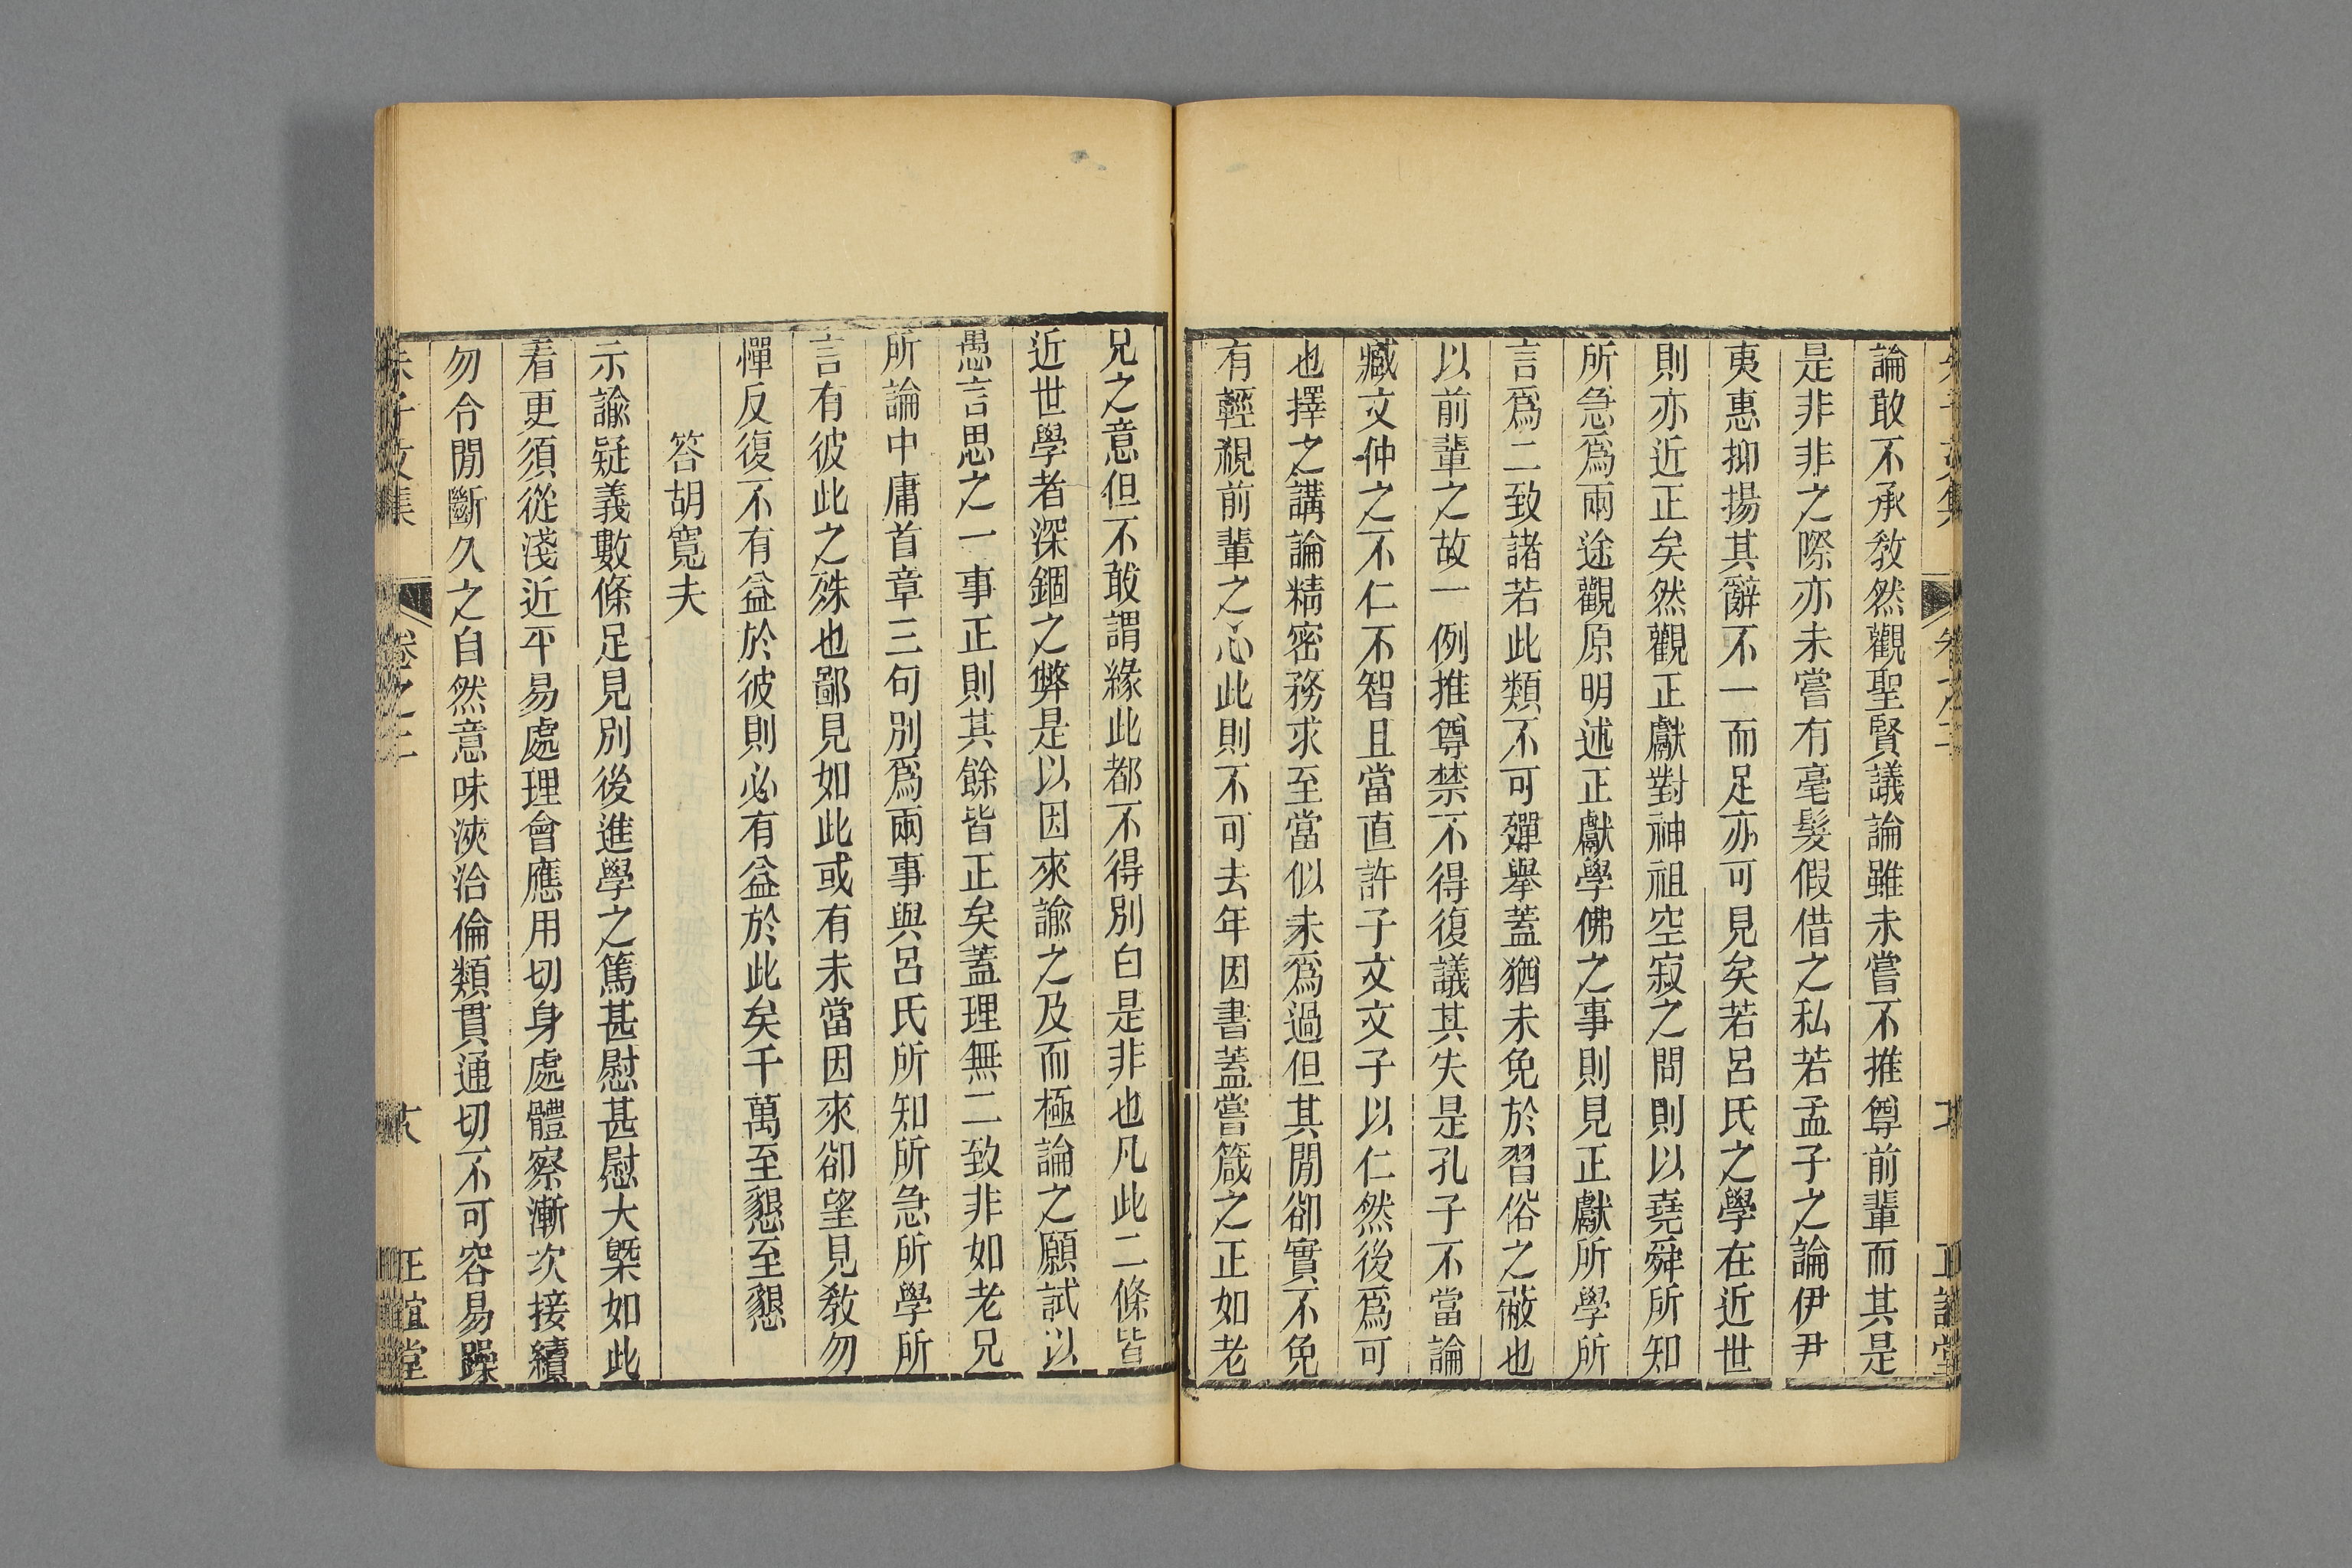 論敢不承教然觀聖賢議論雖未嘗不推尊前輩而其是
是非非之際亦未嘗有毫髮假借之私若孟子之論伊尹
夷惠抑揚其辭不一而足亦可見矣若呂氏之學在近世
則亦近正矣然觀正獻對神祖空寂之問則以堯舜所知
所急爲兩途觀原明述正獻學佛之事則見正獻所學所
言爲二致諸若此類不可殫舉蓋猶未免於習俗之蔽也
以前輩之故一例推尊禁不得復議其失是孔子不當論
臧文仲之不仁不智且當直許子文文子以仁然後爲可
也擇之講論精密務求至當似未爲過但其閒卻實不免
有輕視前輩之心此則不可去年因書蓋嘗箴之正如老
兄之意但不敢謂緣此都不得別白是非也凡此二條皆
近世學者深錮之獘是以因來諭之及而極論之願試以
愚言思之一事正則其餘皆正矣蓋理無二致非如老兄
所論中庸首章三句別爲兩事與呂氏所知所急所學所
言有彼此之殊也鄙見如此或有未當因來卻望見教勿
憚反復不有益於彼則必有益於此矣千萬至懇至懇
答胡寬夫
示諭疑義數條足見別後進學之篤甚慰甚慰大槩如此
看更須從淺近平易處理會應用切身處體察漸次接續
勿令閒斷久之自然意味浹洽倫類貫通切不可容易躁
朱子文集
卷之三
正誼堂